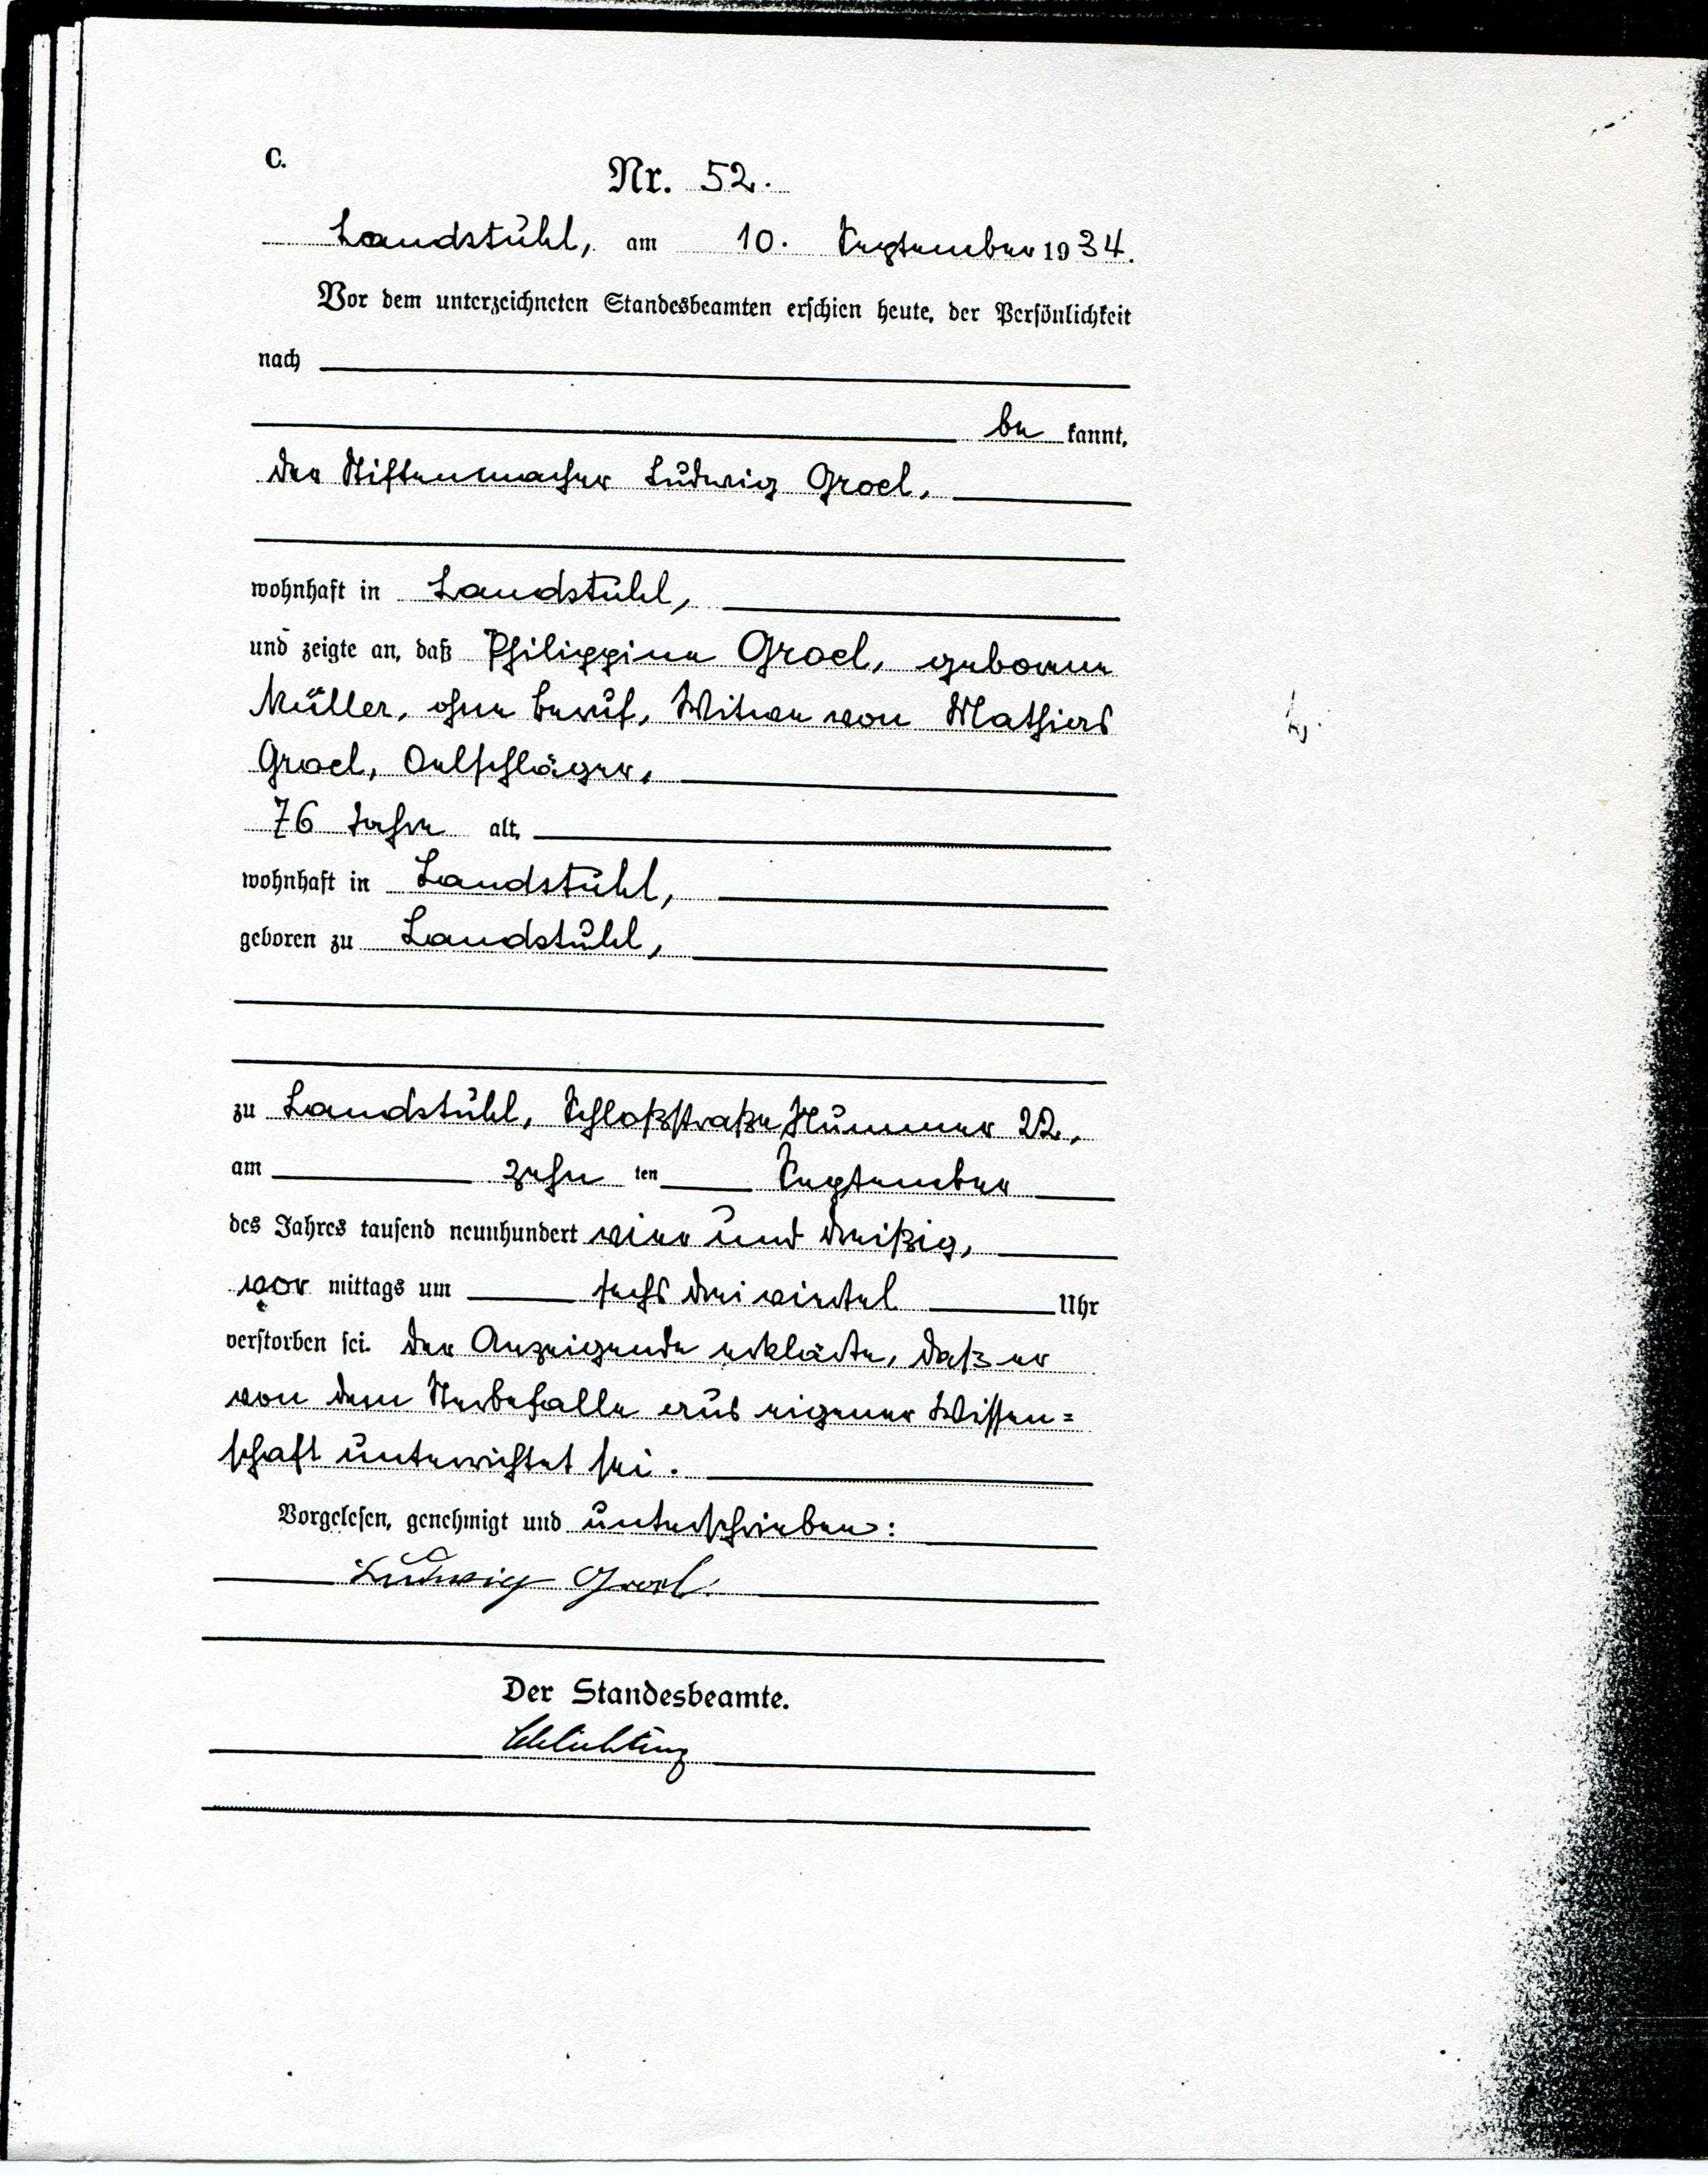 C.
Nr. 52.
Landstuhl, am 10. September 1934.
Vor dem unterzeichneten Standesbeamten erschien heute, der Persönlichkeit
nach
be kannt,
der Stiftenmacher Ludwig Groel,
wohnhaft in Landstuhl,
und zeigte an, daß Philippine Groel, geborene
Müller, ohne Beruf, Witwe von Mathias
Groel, Oelschläger,
76 Jahre alt,
wohnhaft in Landstuhl,
geboren zu Landstuhl,
zu Landstuhl, Schloßstraße Nummer 22,
am zehn ten September
des Jahres tausend neunhundert vier und dreißig,
vor mittags um sechs dreiviertel Uhr
verstorben sei. Der Anzeigende erklärte, daß er
von dem Sterbefalle aus eigener Wissen=
schaft unterrichtet sei.
Vorgelesen, genehmigt und unterschrieben:
Ludwig Groel.
Der Standesbeamte.
Schlichting